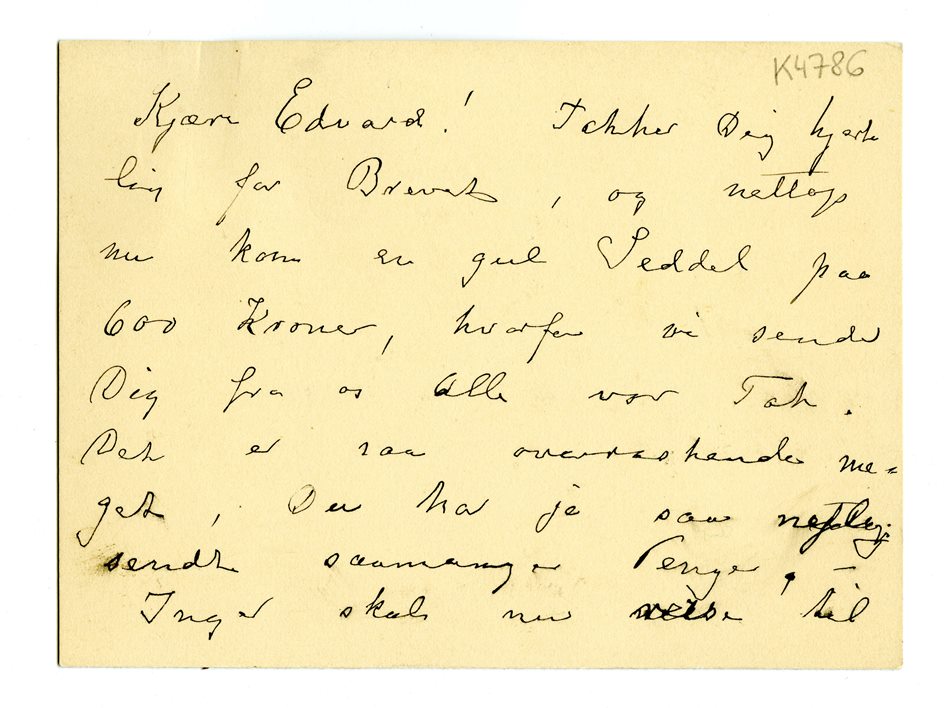 K4786
Kjære Edvard! Takker Dig hjerte
lig for Brevet, og nettop
nu kom en gul Seddel paa
600 Kroner, hvorfor vi sender
Dig fra os Alle vor Tak.
Det er saa overraskende me=
get, Du har jo saa nylig
sendt saamange Penge, –
Inger skal nu reise til